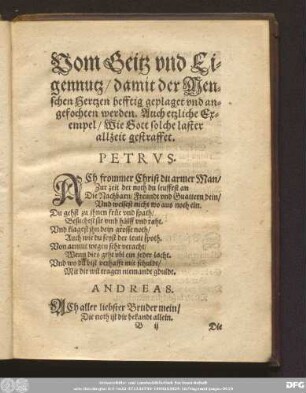 Vom Geitz vnd Ei-
gennutz/ damit der Men-
schen Hertzen hefftig geplaget vnd an-
gefochten werden. Auch etzliche Ex-
empel/ Wie Gott solche laster
allzeit gestraffet.
PETRVS.
ACh frommer Christ du armer Man/
Zur zeit der noth du leuffest an
Die Nachbarn Freunde vnd
Vnd weissest nicht wo aus noch ein.
Du gehst zu jhnen früe vnd spath/
Besuchest sie vmb hülff vnd raht.
Vnd klagest jhn dein grosse noth/
Auch wie du seyst der leute spott.
Von armut wegen sehr veracht/
Wenn dirs geht vbel ein jeder lacht.
Vnd wo du bist verhafft mit schulde/
Mit dir wil tragen niemandt gdulde.
ANDREAS.
ACh aller liebster Bruder mein/
Die noth ist die bekandt allein.
B ij
Die